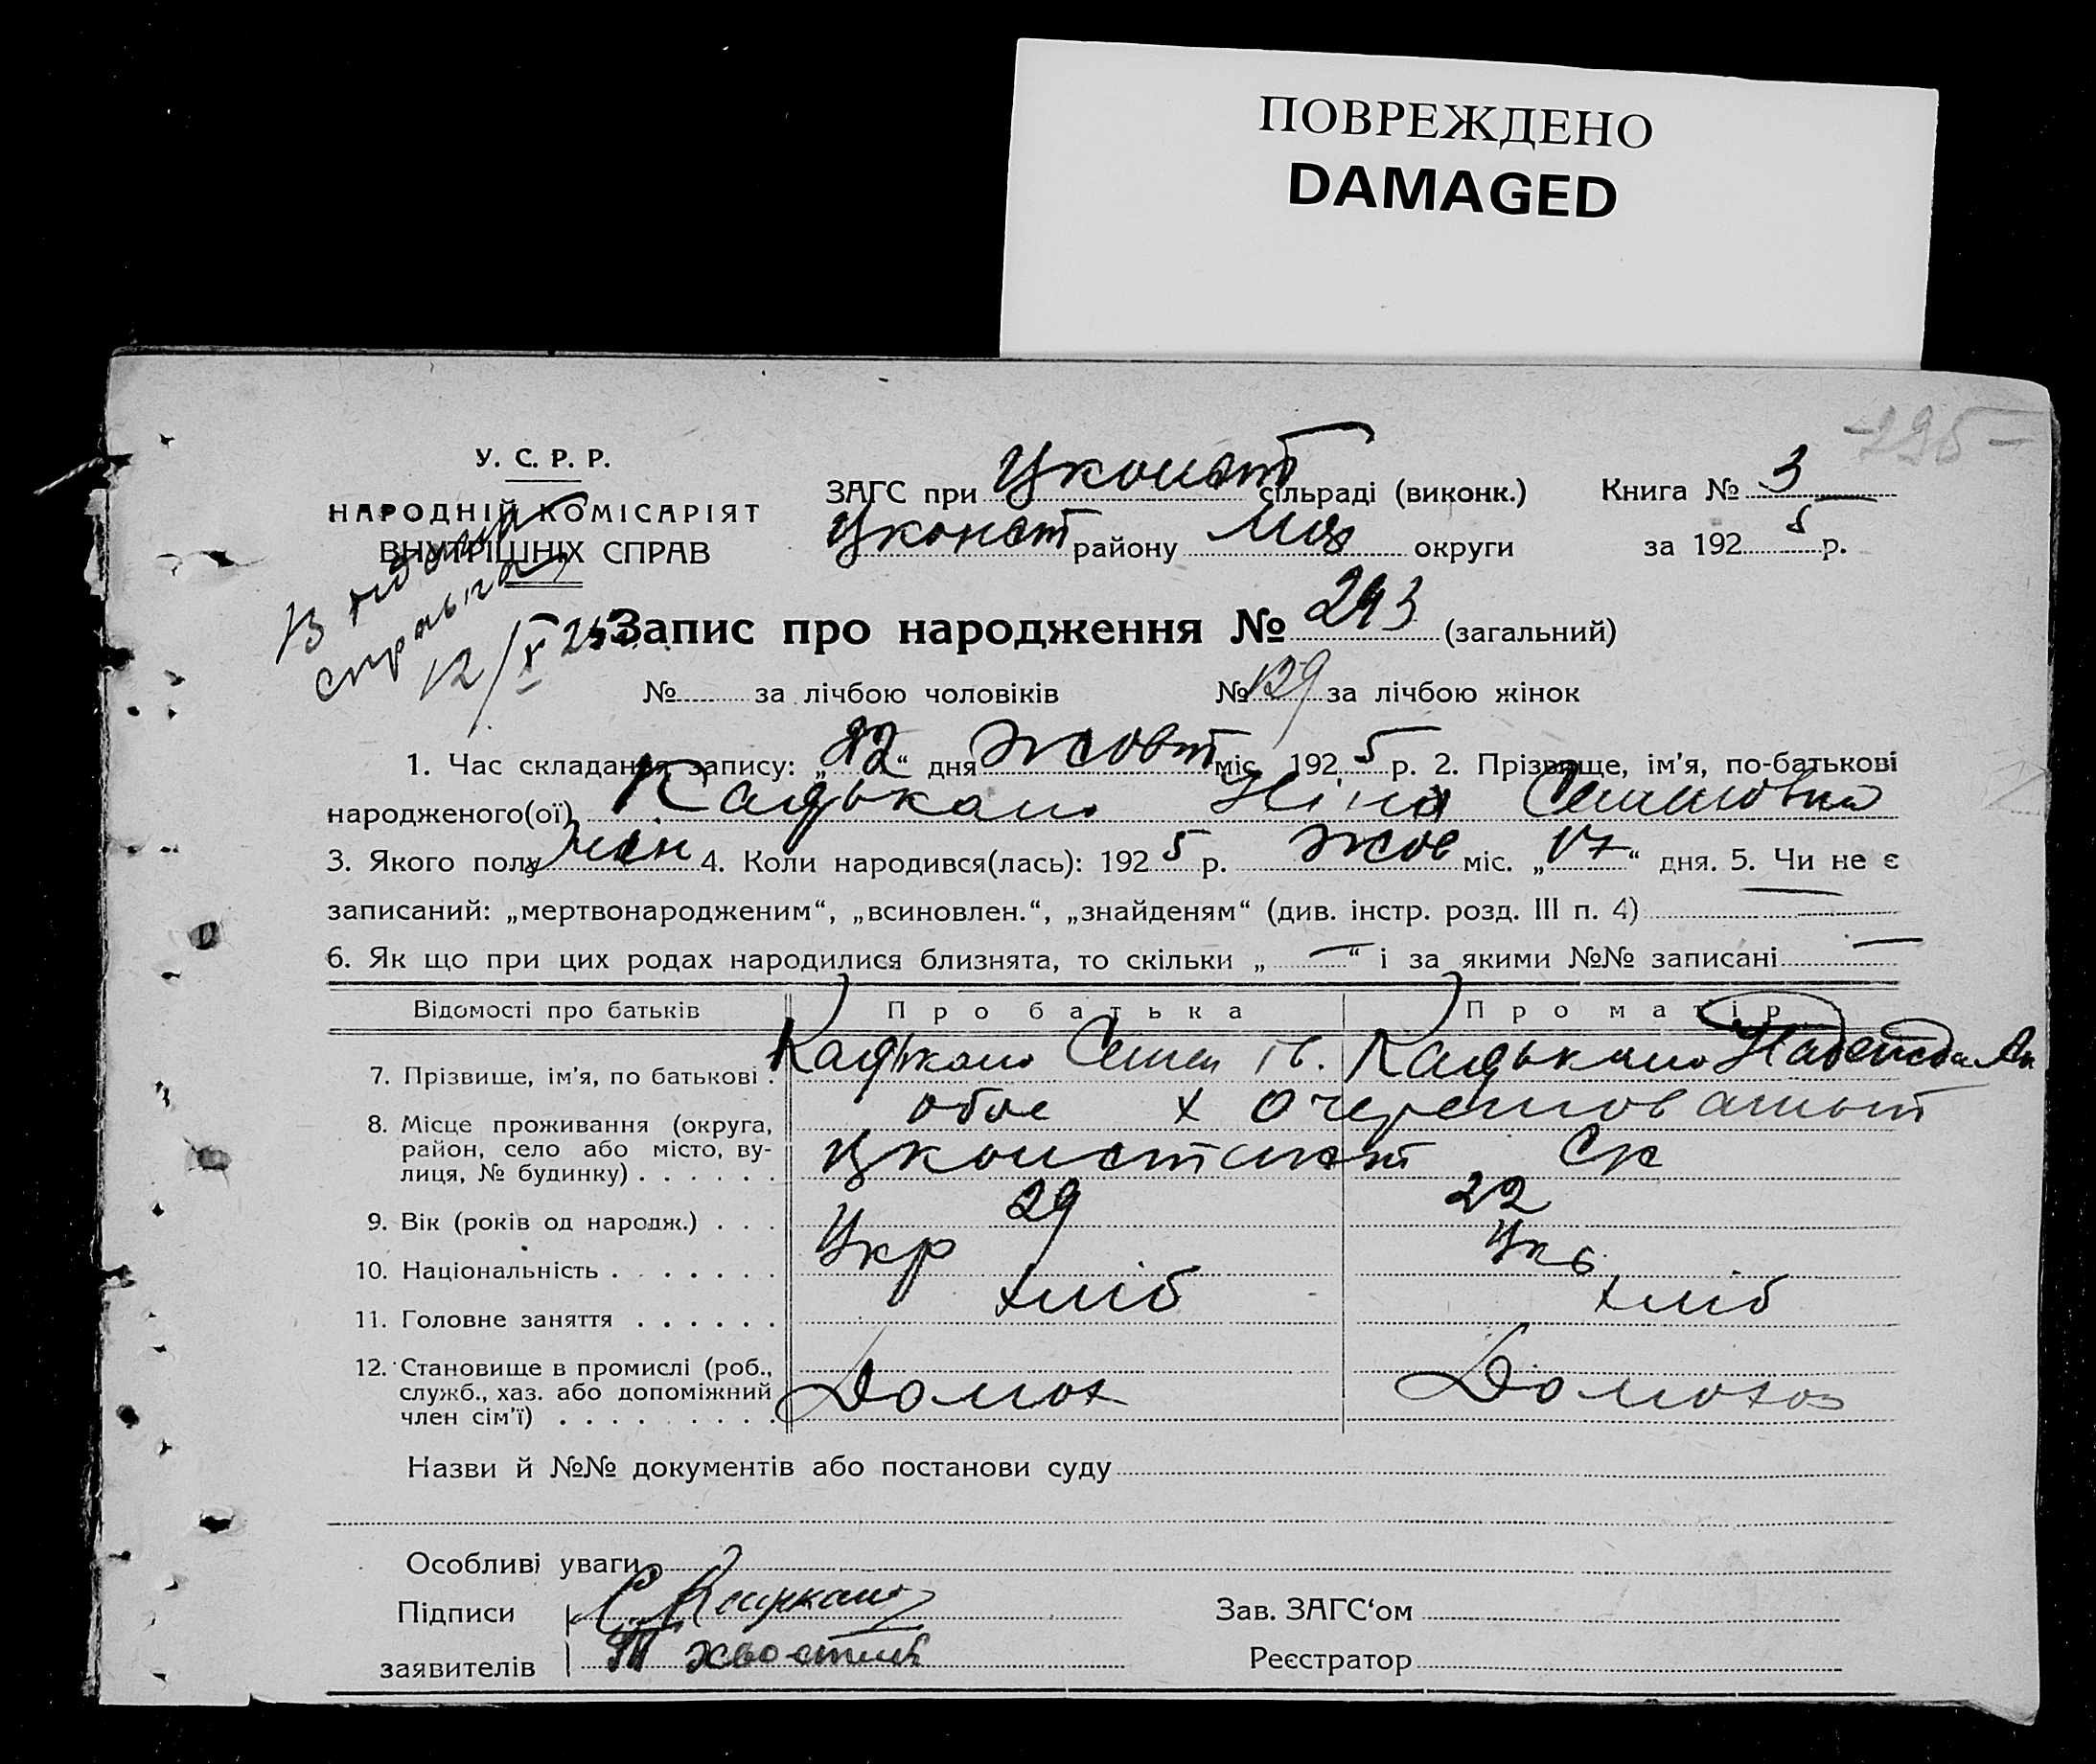 ПОВРЕЖДЕНО
DAMAGED
У. С. Р. Р.
НАРОДНІЙ КОМІСАРІЯТ
ВНУТРІШНІХ СПРАВ
ЗАГС при Цконст сільраді (виконк.)
Цконст району округи
Книга № 3
за 192 5 р.
12/X 25
Запис про народження № 243 (загальний)
№ за лічбою чоловіків № 129 за лічбою жінок
1. Час складання запису: „22“ дня жовт міс. 192 5 р. 2. Прізвище, ім'я, по-батькові
народженого(ої) Ніна Семеновна
3. Якого полу жін 4. Коли народився(лась): 192 5 р. жов міс. „17“ дня. 5. Чи не є
записаний: „мертвонародженим“, „всиновлен.“, „знайденям“ (див. інстр. розд. III п. 4) —
6. Як що при цих родах народилися близнята, то скільки „—“ і за якими №№ записані —
Відомості про батьків Про батька Про матір
7. Прізвище, ім'я, по батькові . Семен Надежда
8. Місце проживання (округа, район, село або місто, вулиця, № будинку) . . . . . . обое х
9. Вік (років од народж.) . . . 29 22
10. Національність . . . . . . . Укр Укр
11. Головне заняття . . . . . . хліб хліб
12. Становище в промислі (роб., служб., хаз. або допоміжний член сім'ї) . . . . . . . . . Домох Домохоз
Назви й №№ документів або постанови суду
Особливі уваги
Підписи
Зав. ЗАГС'ом
заявителів
Реєстратор